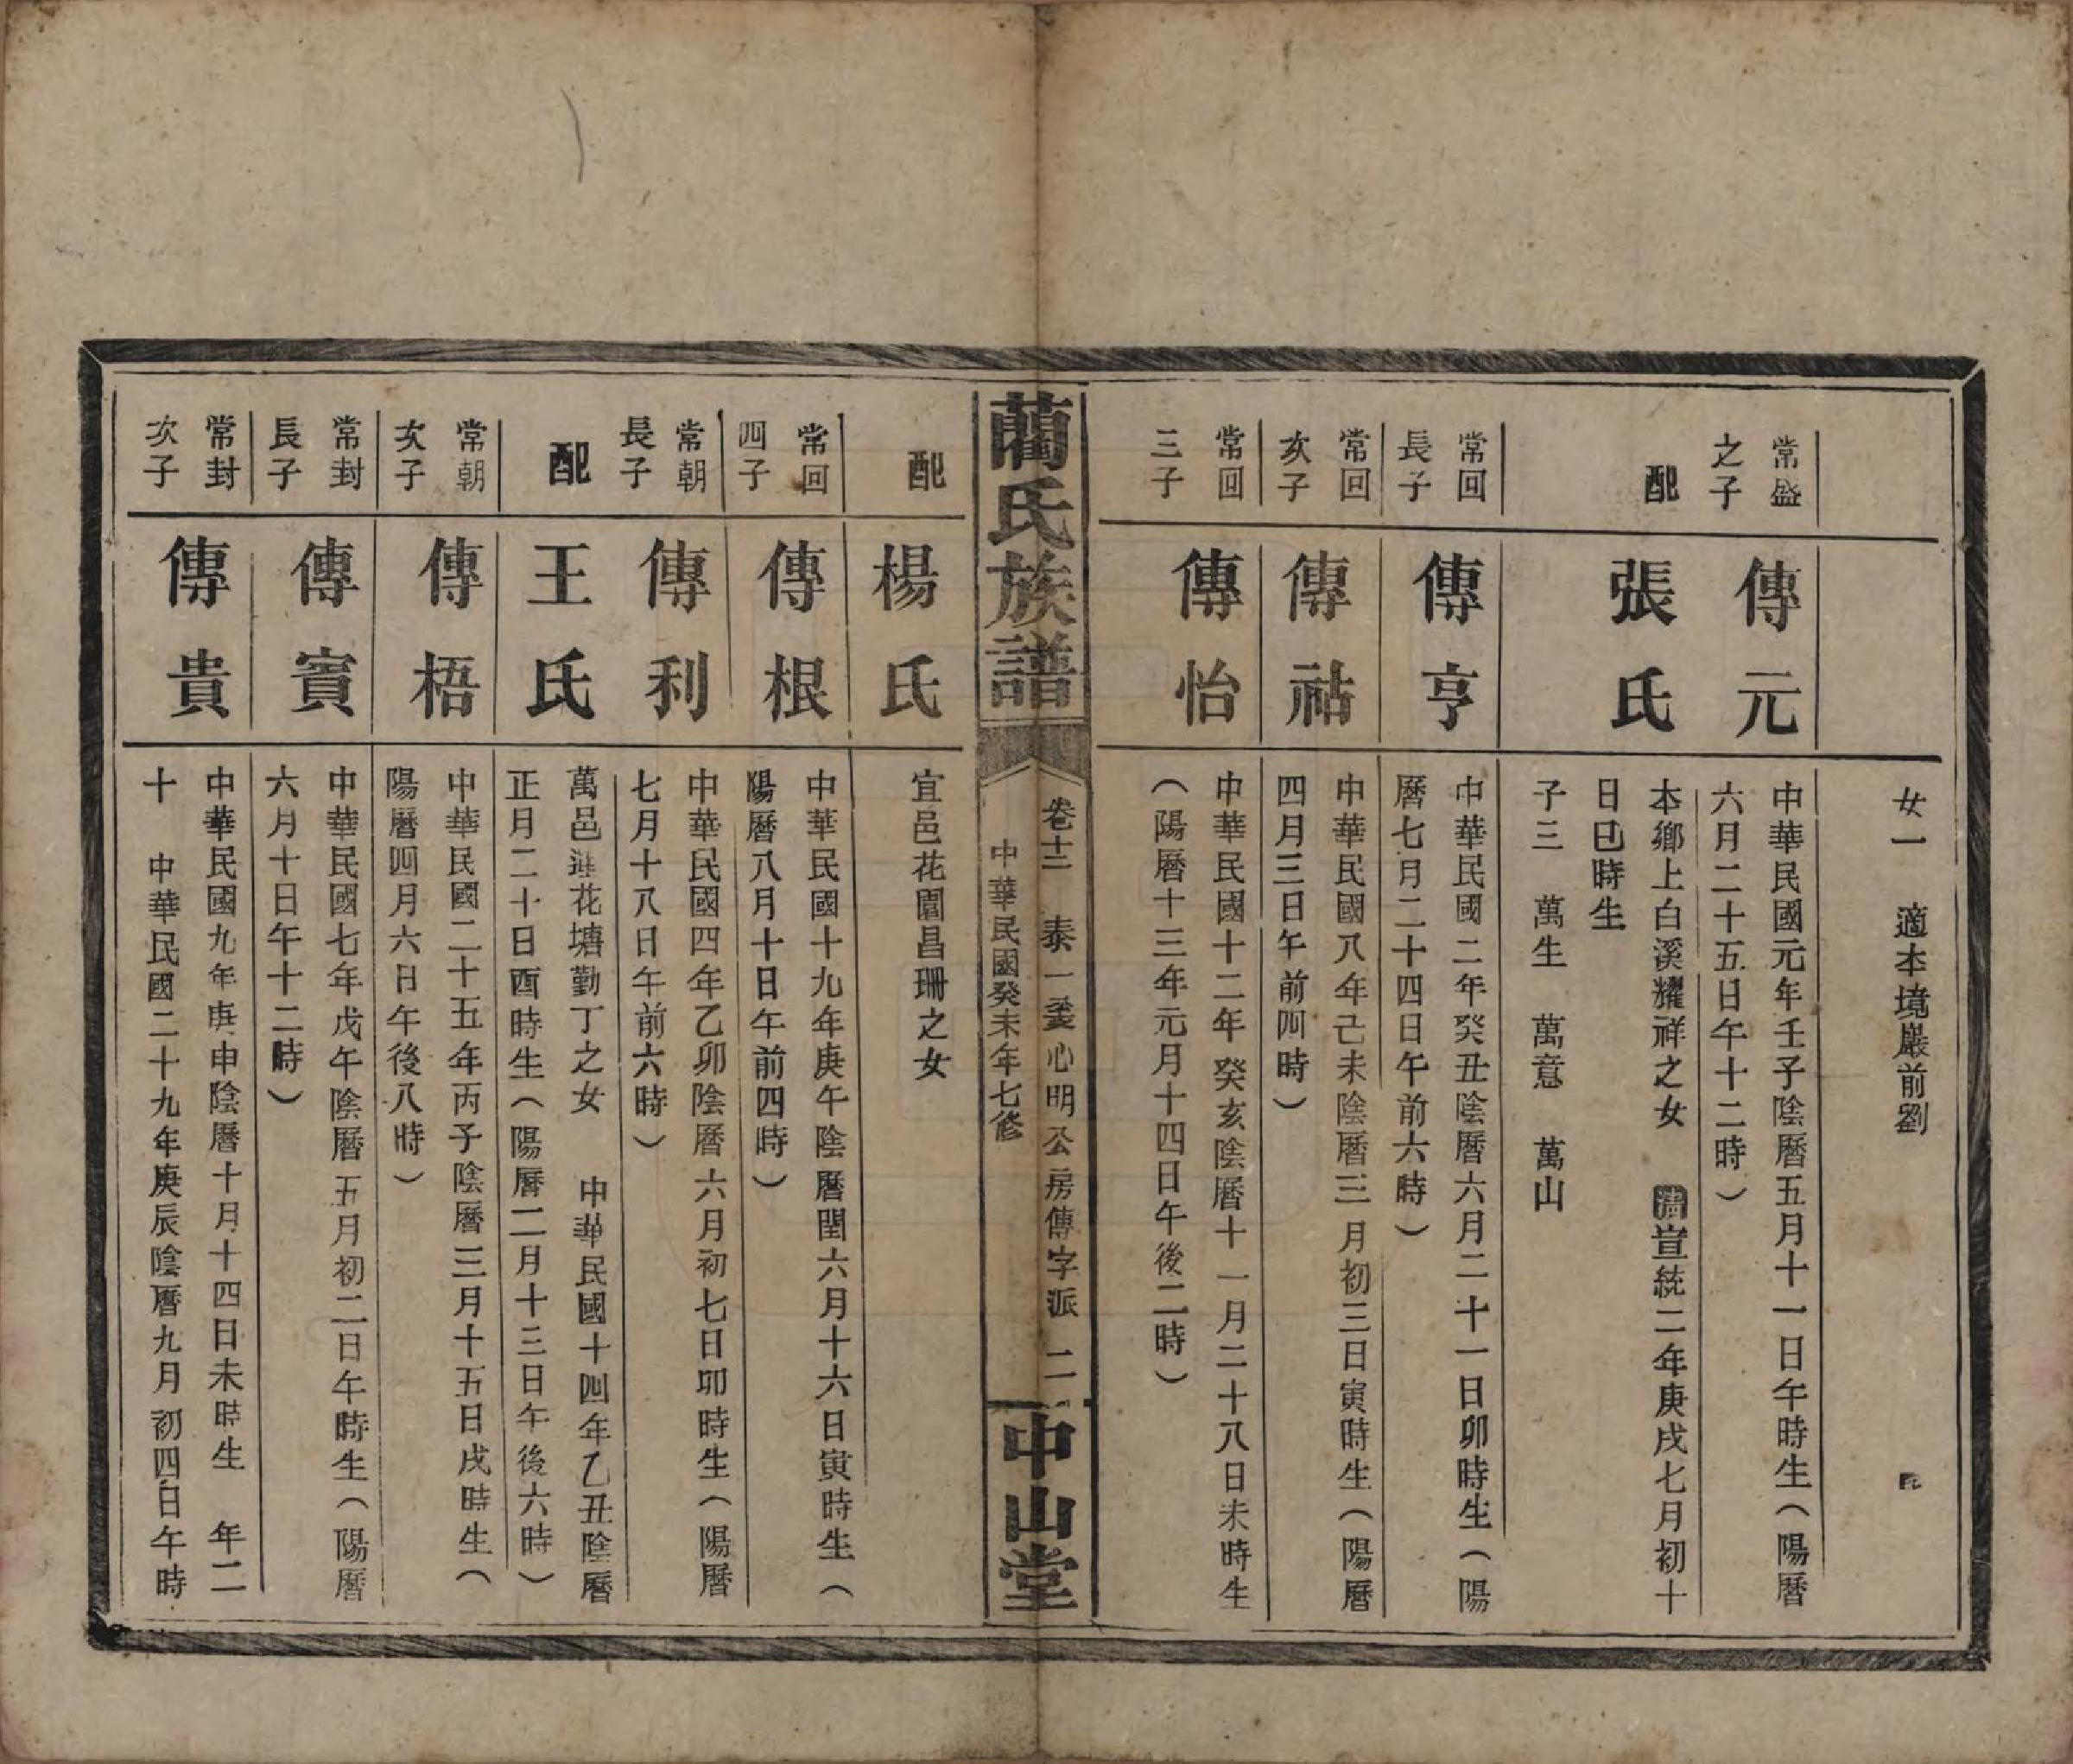 女一　適本境嚴前劉
常盛
之子
傳元
中華民國元年壬子陰曆五月十一日午時生（陽曆
六月二十五日午十二時）
配
張氏
本鄉上白溪耀祥之女　清宣統二年庚戌七月初十
日巳時生
子三　萬生　萬意　萬山
常回
長子
傳亨
中華民國二年癸丑陰曆六月二十一日卯時生（陽
曆七月二十四日午前六時）
常回
次子
傳祜
中華民國八年己未陰曆三月初三日寅時生（陽曆
四月三日午前四時）
常回
三子
傳怡
中華民國十二年癸亥陰曆十一月二十八日未時生
（陽曆十三年元月十四日午後二時）
藺氏族譜
卷十二　泰一　心明公房傳字派　二
中華民國癸未年七修
中山堂
配
楊氏
宜邑花園昌珊之女
常回
四子
傳根
中華民國十九年庚午陰曆閏六月十六日寅時生（
陽曆八月十日午前四時）
常朝
長子
傳利
中華民國四年乙卯陰曆六月初七日卯時生（陽曆
七月十八日午前六時）
配
王氏
萬邑蓮花塘勤丁之女　中華民國十四年乙丑陰曆
正月二十日酉時生（陽曆二月十三日午後六時）
常朝
次子
傳梧
中華民國二十五年丙子陰曆三月十五日戌時生（
陽曆四月六日午後八時）
常封
長子
傳賓
中華民國七年戊午陰曆五月初二日午時生（陽曆
六月十日午十二時）
常封
次子
傳貴
中華民國九年庚申陰曆十月十四日未時生　年二
十　中華民國二十九年庚辰陰曆九月初四日午時